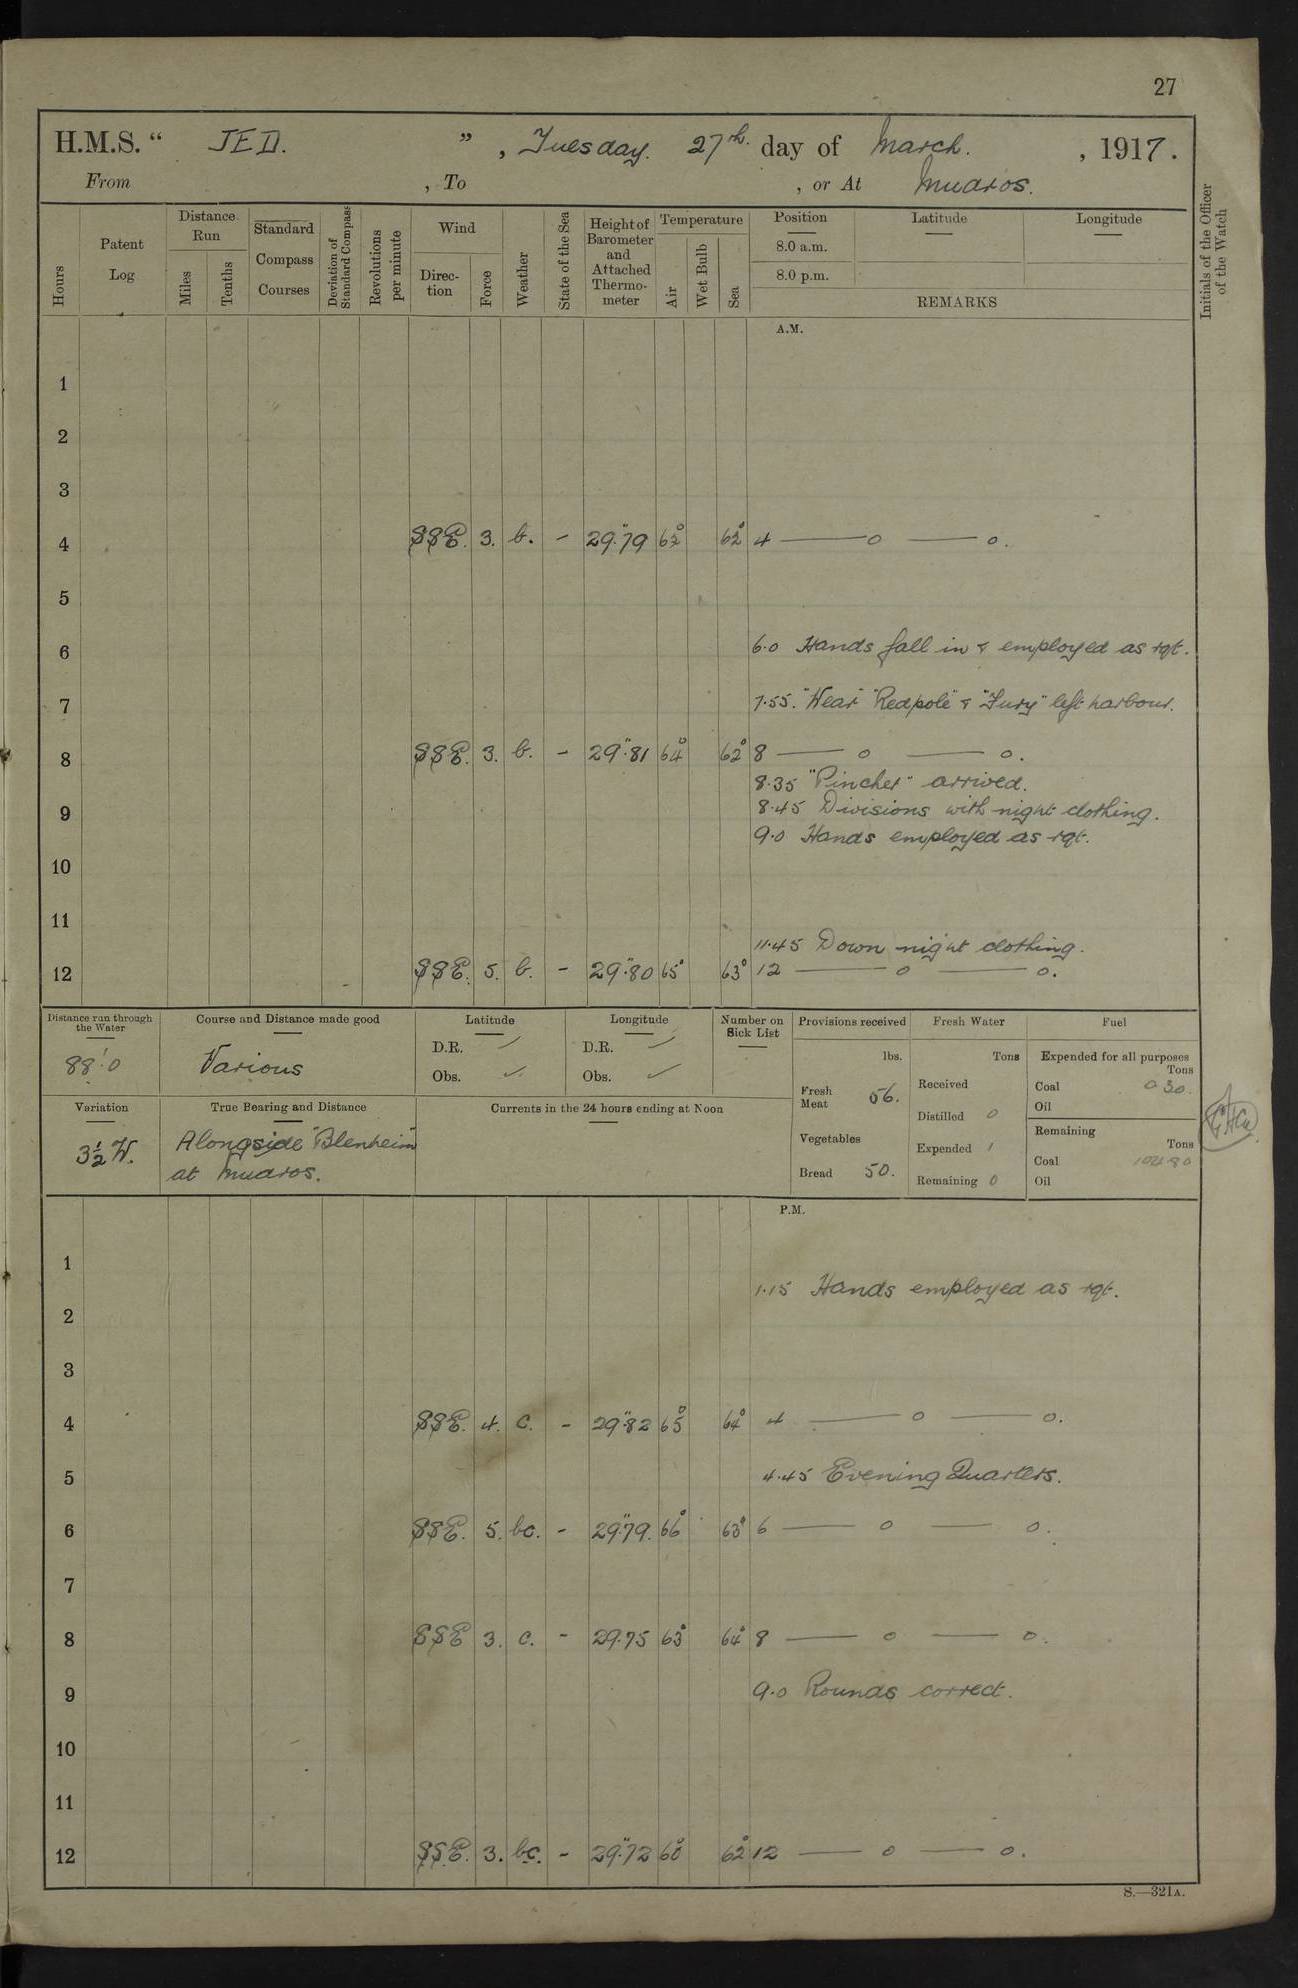 27
H.M.S. “ JED. ” , Tuesday. 27th. day of March. , 1917.
From , To , or At Mudros.
Hours
Patent Log
Distance Run
Miles
Tenths
Standard Compass Courses
Deviation of Standard Compass
Revolutions per minute
Wind
Direction
Force
Weather
State of the Sea
Height of Barometer and Attached Thermometer
Temperature
Air
Wet Bulb
Sea
Position
Latitude
Longitude
8.0 a.m.
8.0 p.m.
REMARKS
Initials of the Officer of the Watch
A.M.
1
2
3
4 SSE. 3. b. - 29."79 62° 62° 4 —— o —— o.
5
6 6.0 Hands fall in & employed as rqt.
7 7.55. "Wear" "Redpole" & "Fury" left harbour.
8 SSE. 3. b. - 29".81 64° 62° 8 —— o —— o.
8.35 "Pincher" arrived.
9 8.45 Divisions with night clothing.
9.0 Hands employed as rqt.
10
11
11.45 Down night clothing.
12 SSE. 5. b. - 29".80 65° 63° 12 —— o —— o.
Distance run through the Water
88'.0
Course and Distance made good
Various
Latitude
D.R. ✓
Obs. ✓
Longitude
D.R. ✓
Obs. ✓
Number on Sick List
Provisions received
lbs.
Fresh Meat 56.
Vegetables
Bread 50.
Fresh Water
Tons
Received
Distilled 0
Expended 1
Remaining 0
Fuel
Expended for all purposes
Tons
Coal 0 30.
Oil
Remaining
Tons
Coal 104.80
Oil
Variation
3½ W.
True Bearing and Distance
Alongside "Blenheim"
at Mudros.
Currents in the 24 hours ending at Noon
P.M.
1
1.15 Hands employed as rqt.
2
3
4 SSE. 4. c. - 29".82 65° 64° 4 —— o —— o.
5 4.45 Evening Quarters.
6 SSE. 5. bc. - 29".79. 66° 63° 6 —— o —— o.
7
8 SSE 3. c. - 29.75 63° 64° 8 —— o —— o.
9 9.0 Rounds correct.
10
11
12 SSE. 3. bc. - 29".72 60° 62° 12 —— o —— o.
S.—321A.